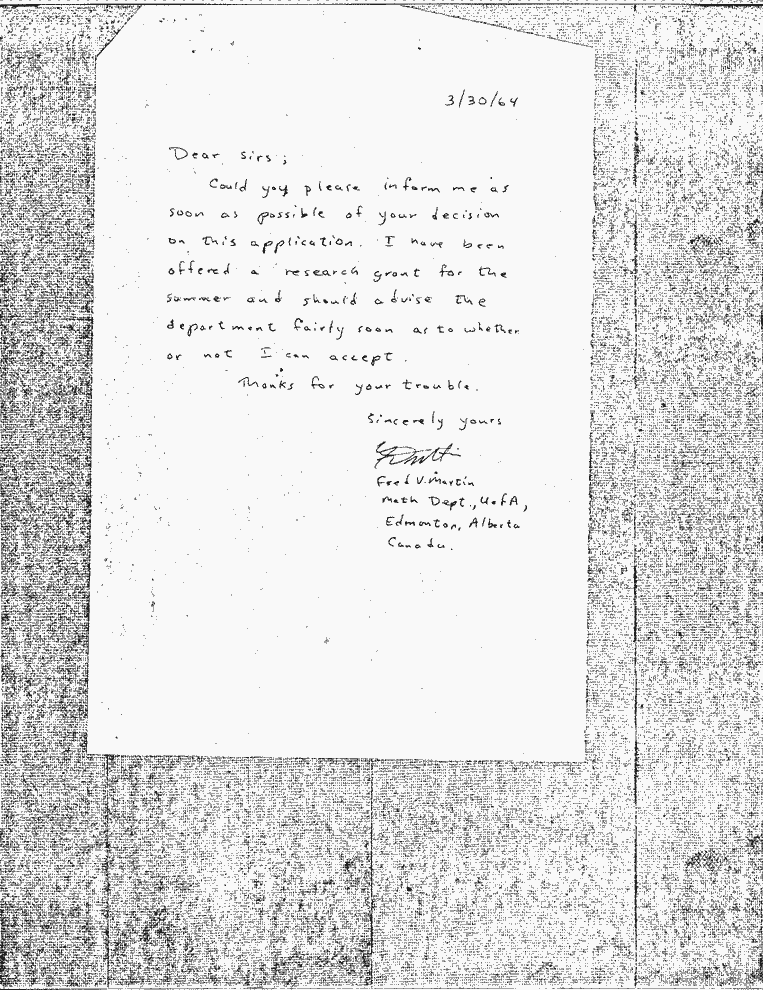 3/30/64
Dear Sirs;
Could you please inform me as
soon as possible of your decision
on this application. I have been
offered a research grant for the
summer and should advise the
department fairly soon as to whether
or not I can accept.
Thanks for your trouble.
Sincerely yours
Fred V. Martin
Math Dept., U of A,
Edmonton, Alberta
Canada.